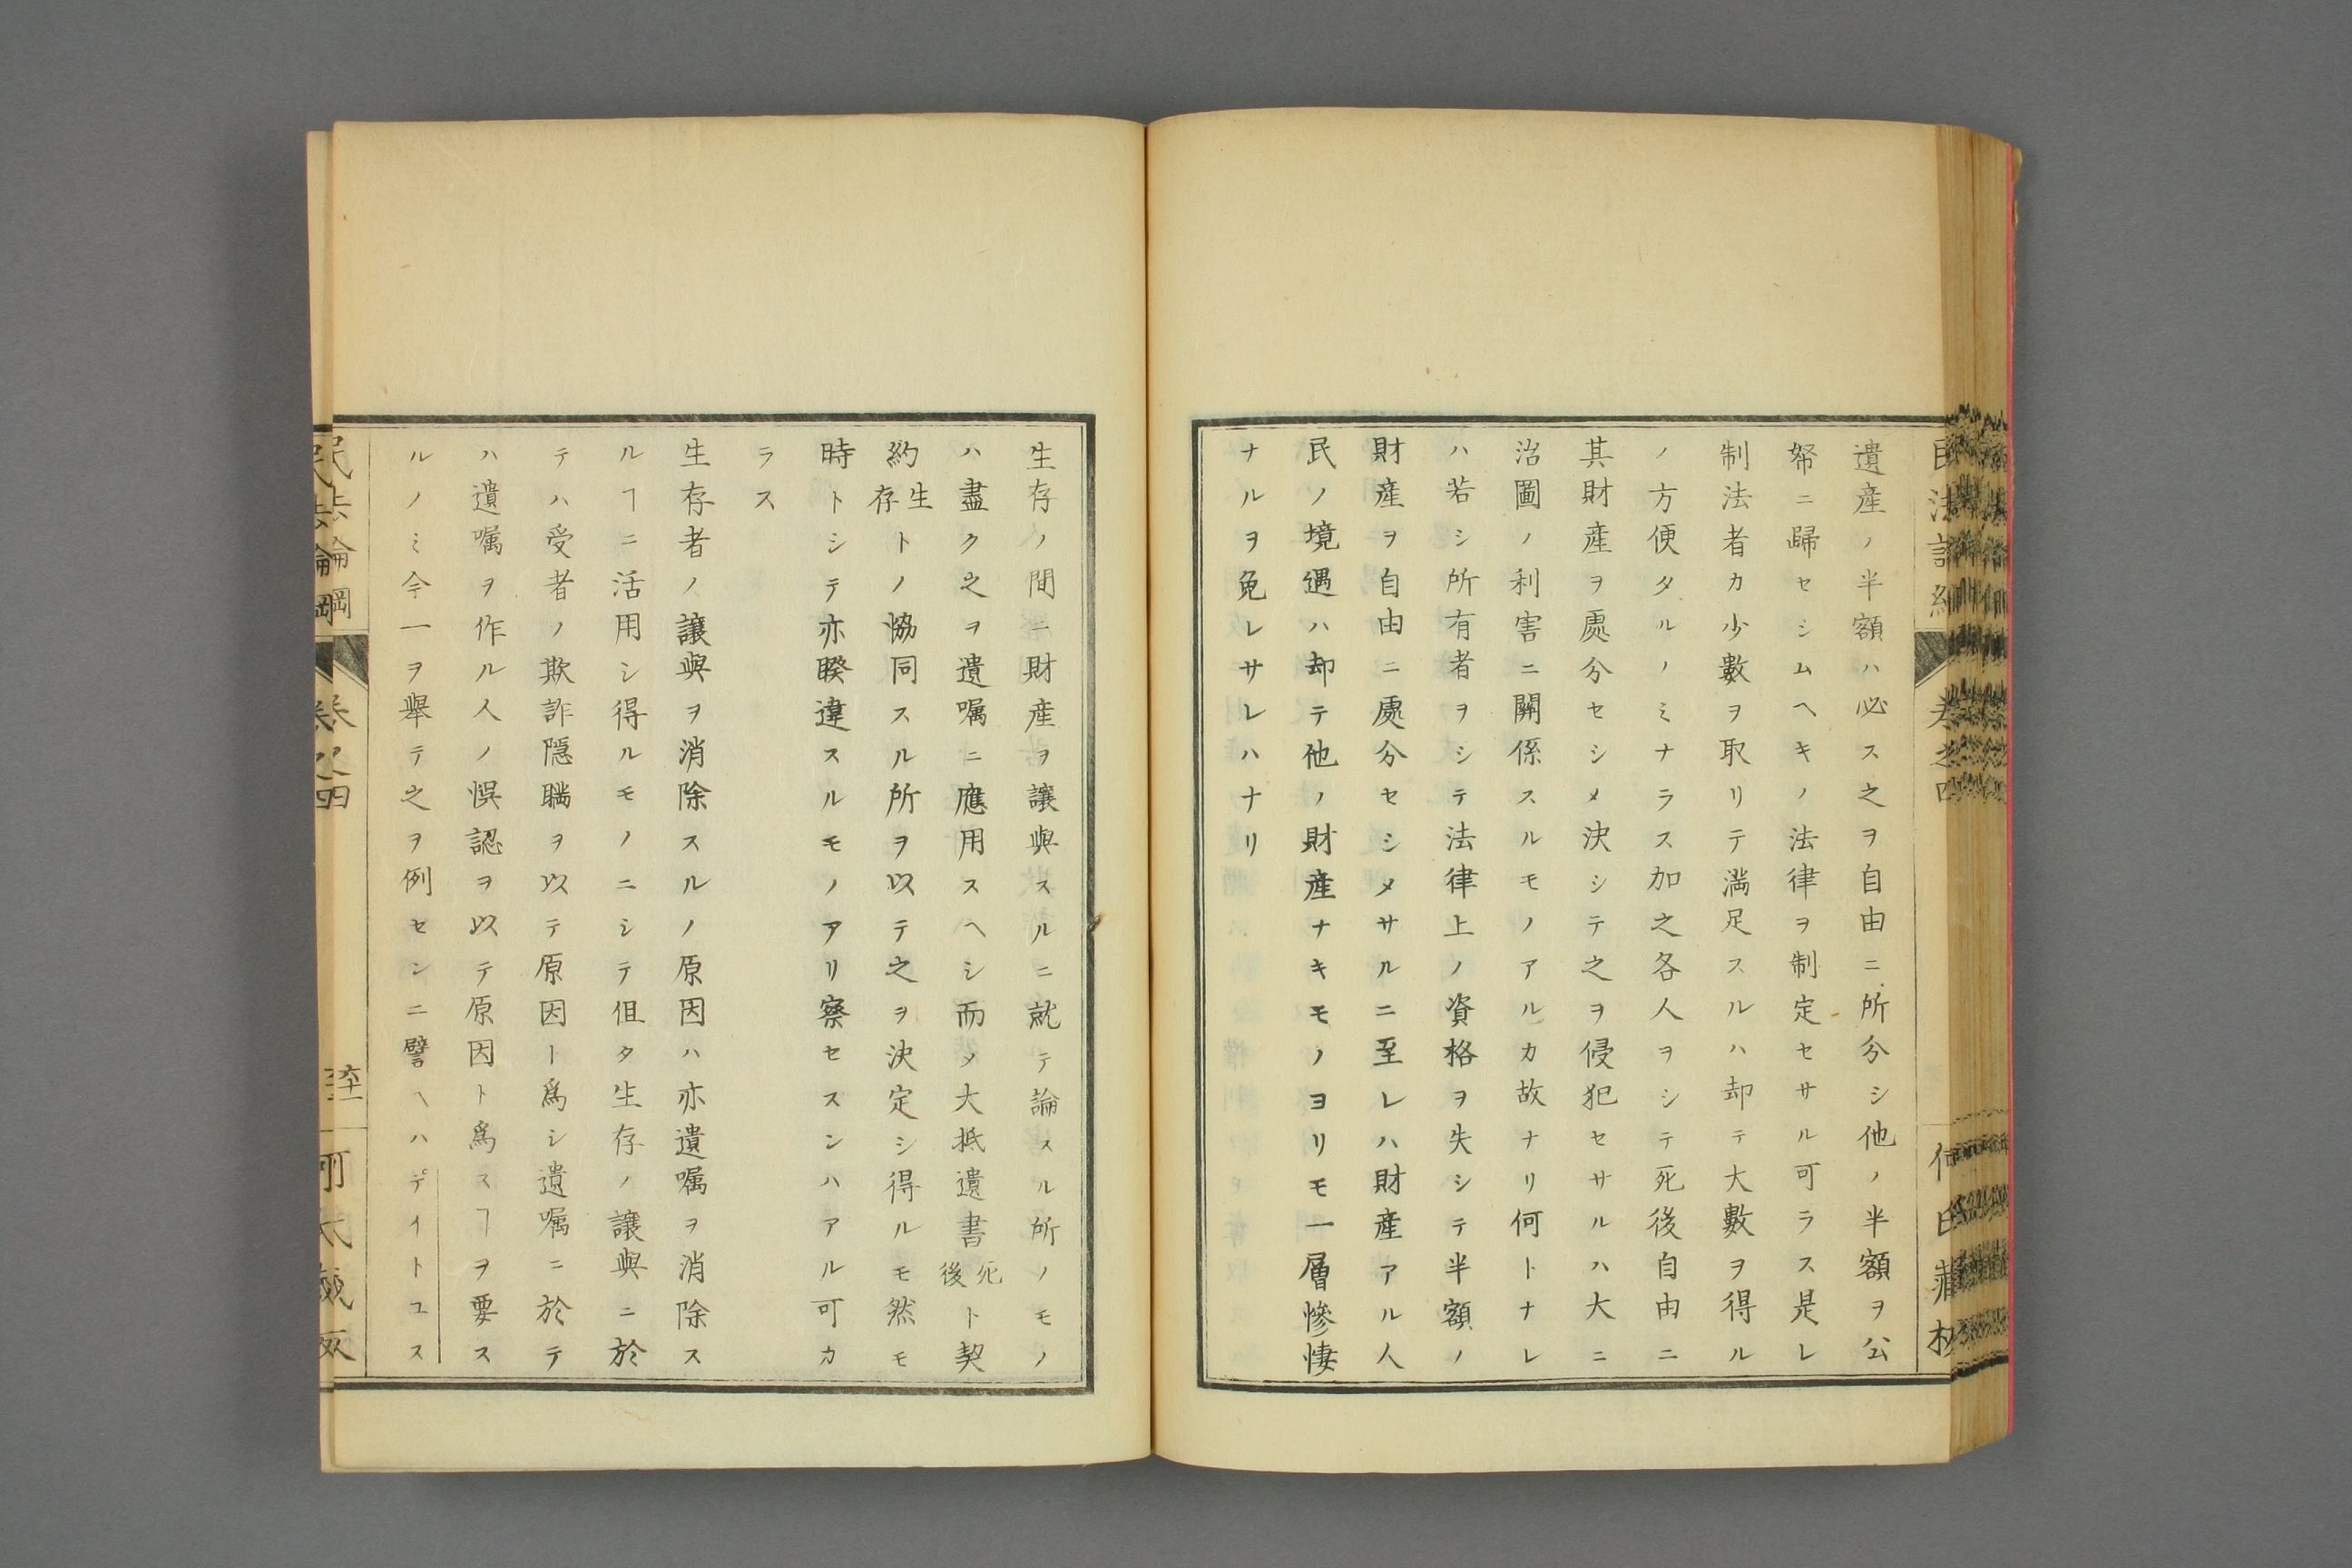 遺産ノ半額ハ必ス之ヲ自由ニ所分シ他ノ半額ヲ公
帑ニ歸セシムヘキノ法律ヲ制定セサル可ラス是レ
制法者カ少數ヲ取リテ満足スルハ却テ大數ヲ得ル
ノ方便タルノミナラス加之各人ヲシテ死後自由ニ
其財産ヲ處分セシメ決シテ之ヲ侵犯セサルハ大ニ
治圖ノ利害ニ關係スルモノアルカ故ナリ何トナレ
ハ若シ所有者ヲシテ法律上ノ資格ヲ失シテ半額ノ
財産ヲ自由ニ處分セシメサルニ至レハ財産アル人
民ノ境遇ハ却テ他ノ財産ナキモノヨリモ一層慘悽
ナルヲ免レサレハナリ
生存ノ間ニ財産ヲ讓與スルニ就テ論スル所ノモノ
ハ盡ク之ヲ遺嘱ニ應用スヘシ而メ大抵遺書死後ト契
約生存トノ協同スル所ヲ以テ之ヲ決定シ得ルモ然モ
時トシテ亦睽違スルモノアリ察セスンハアル可カ
ラス
生存者ノ讓與ヲ消除スルノ原因ハ亦遺嘱ヲ消除ス
ルヿニ活用シ得ルモノニシテ但タ生存ノ讓與ニ於
テハ受者ノ欺詐隠瞞ヲ以テ原因ト爲シ遺嘱ニ於テ
ハ遺嘱ヲ作ル人ノ悞認ヲ以テ原因ト爲スヿヲ要ス
ルノミ今一ヲ擧テ之ヲ例センニ譬ヘハデイトユス
卷之四